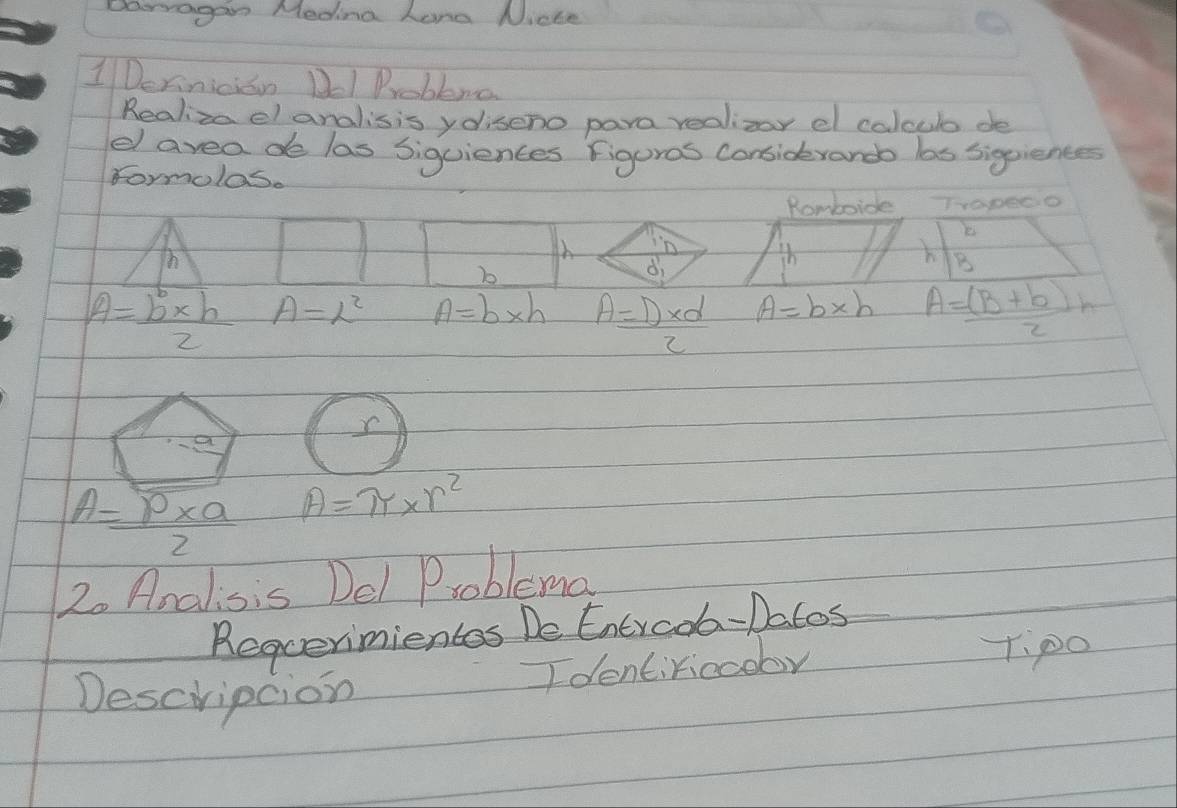 Barragán Medina Lana Nicke
1 Definición Del Problema
Realiza el analisis y diseno para realizar el calculo de
el area de las Siguientes Figuras Considerando las Siguientes
Formulas.
Romboide Trapecio
h b h D d h h b B
A=b×h/2 A=L² A=b×h A=D×d/2 A=b×h A=(B+b)h/2
a r
A=P×a/2 A=π×r²
2. Analisis Del Problema
Requerimientos De Entrada-Datos
Descripción Identificador Tipo